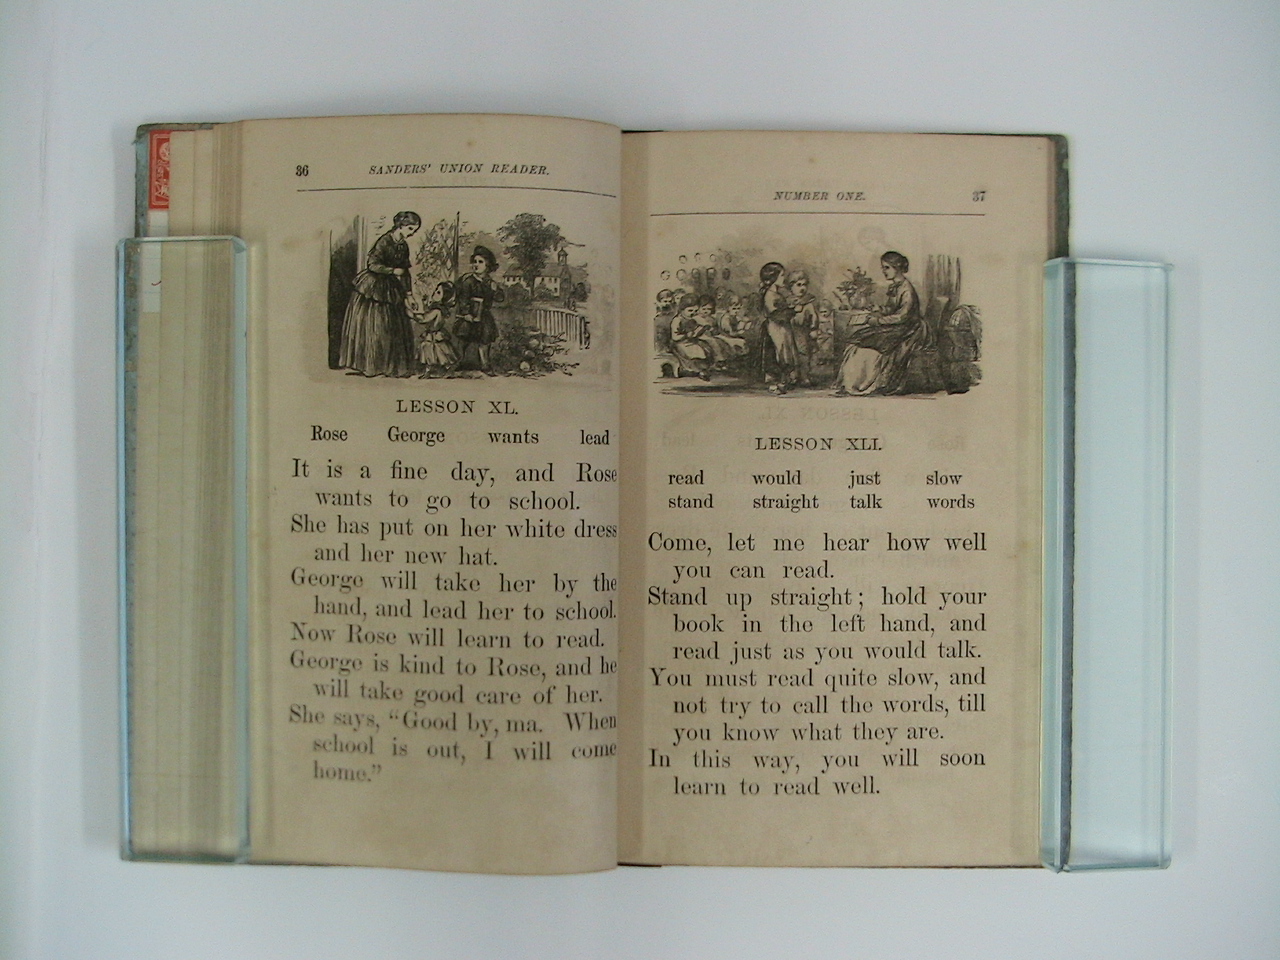 36 SANDERS' UNION READER.
LESSON XL.
Rose George wants lead
It is a fine day, and Rose
wants to go to school.
She has put on her white dress
and her new hat.
George will take her by the
hand, and lead her to school.
Now Rose will learn to read.
George is kind to Rose, and he
will take good care of her.
She says, "Good by, ma. When
school is out, I will come
home."
NUMBER ONE. 37
LESSON XLI.
read would just slow
stand straight talk words
Come, let me hear how well
you can read.
Stand up straight; hold your
book in the left hand, and
read just as you would talk.
You must read quite slow, and
not try to call the words, till
you know what they are.
In this way, you will soon
learn to read well.